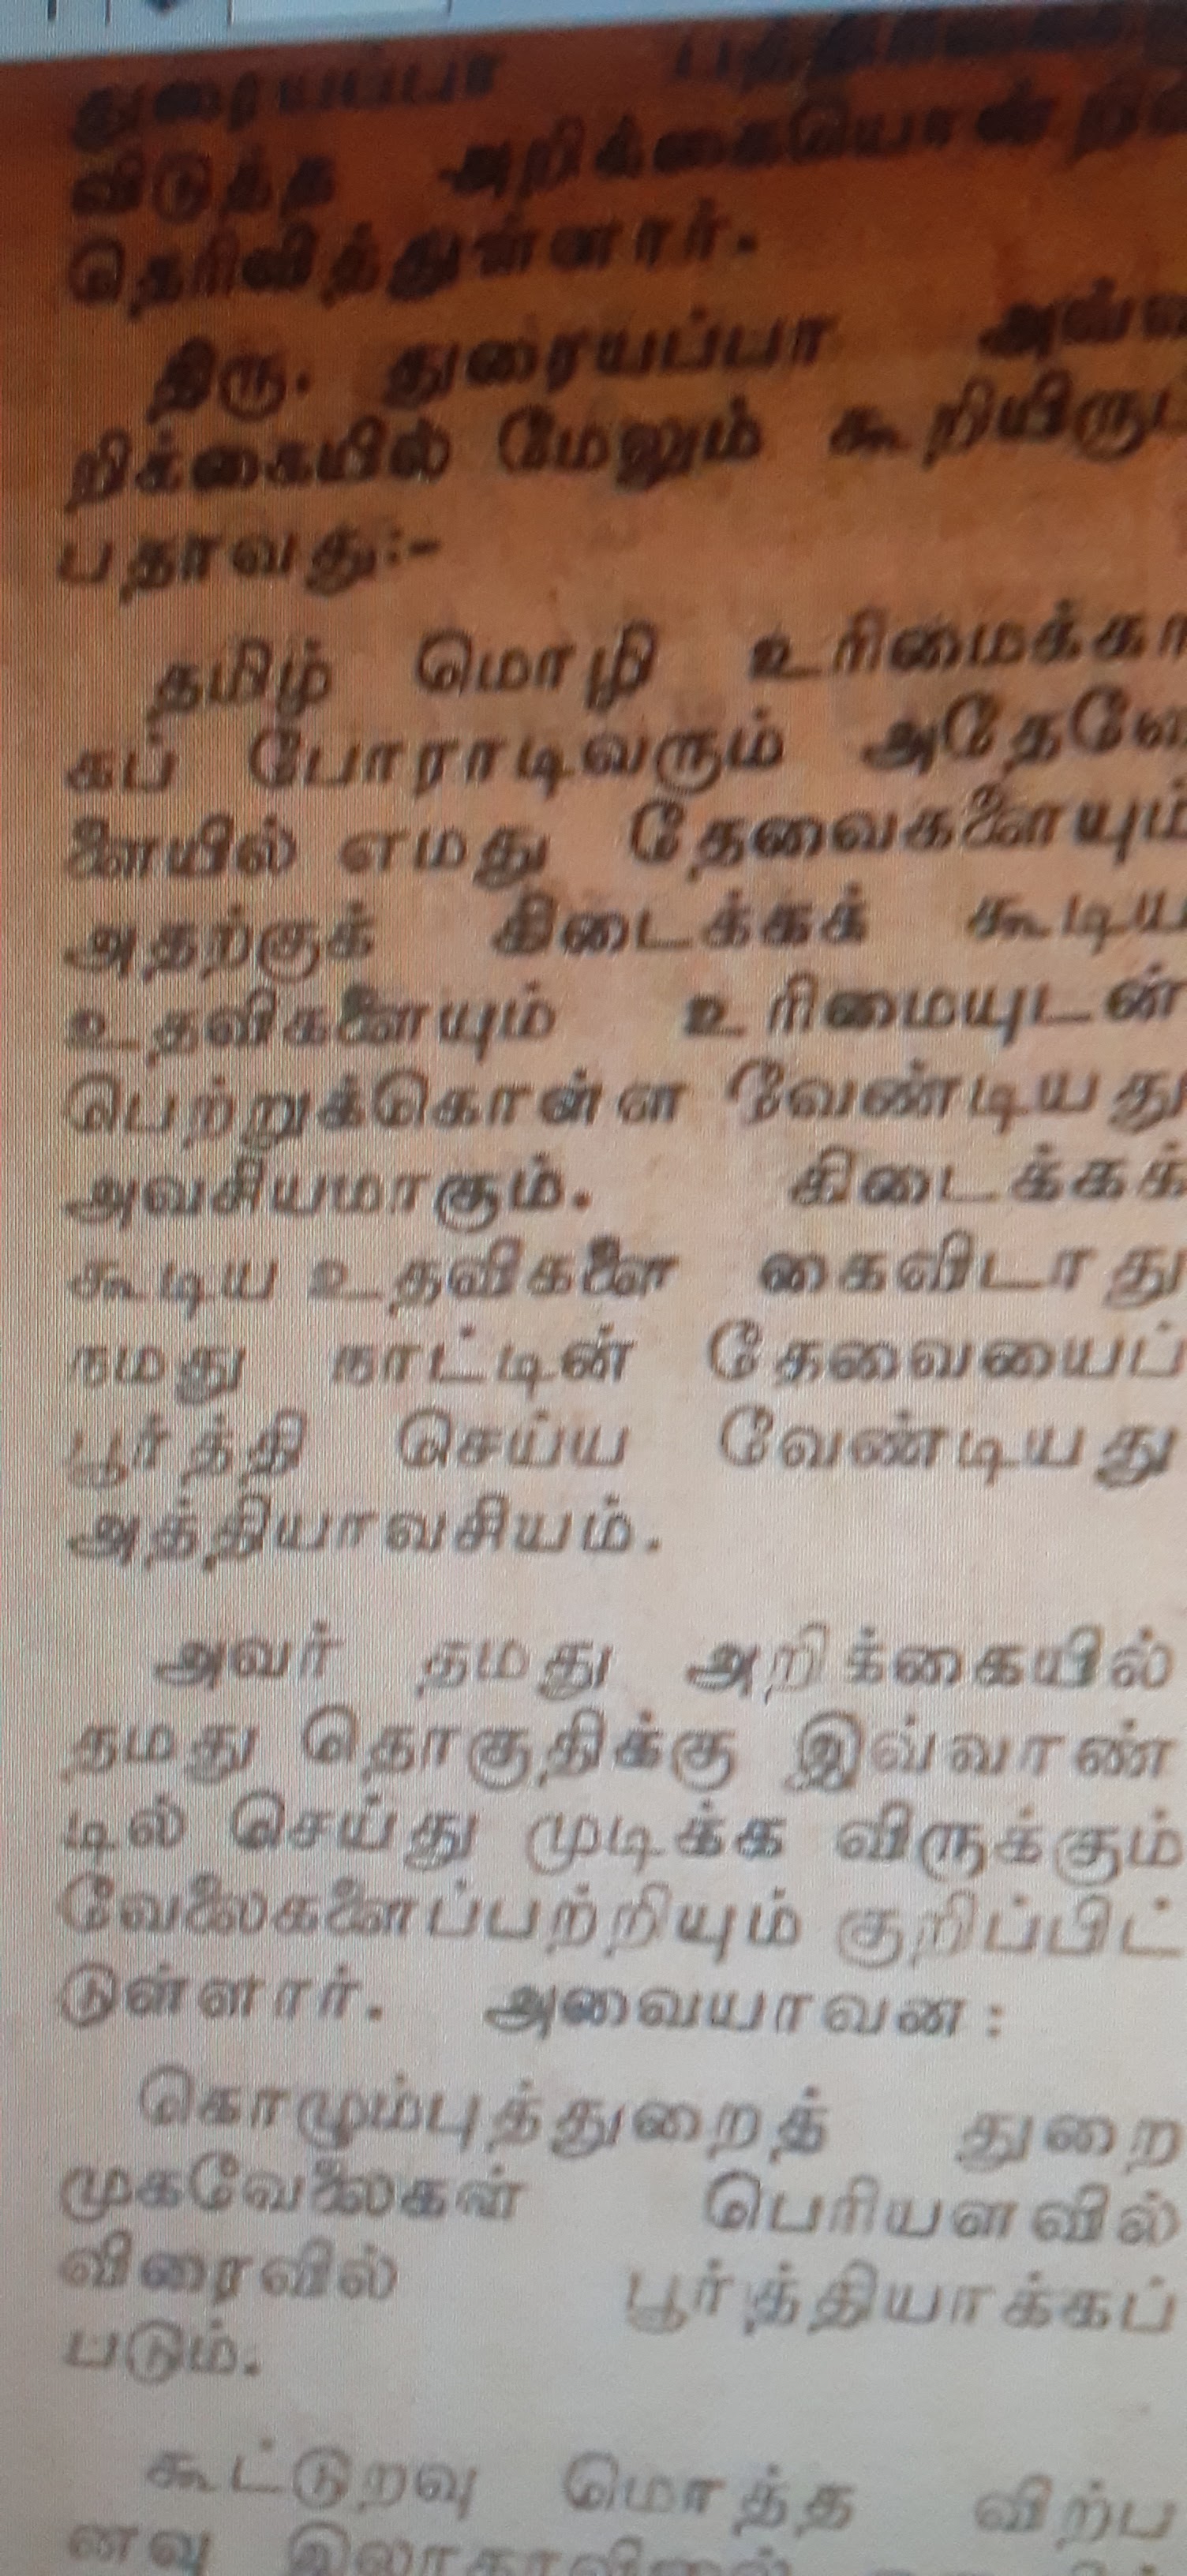 துரையப்பா
விடுத்த அறிக்கையொன்றில்
தெரிவித்துள்ளார்.
திரு. துரையப்பா அவ்வ
றிக்கையில் மேலும் கூறியிருப்
பதாவது:-
தமிழ் மொழி உரிமைக்கா
கப் போராடிவரும் அதேவே
ளையில் எமது தேவைகளையும்
அதற்குக் கிடைக்கக் கூடிய
உதவிகளையும் உரிமையுடன்
பெற்றுக்கொள்ள வேண்டியது
அவசியமாகும். கிடைக்கக்
கூடிய உதவிகளை கைவிடாது
நமது நாட்டின் தேவையைப்
பூர்த்தி செய்ய வேண்டியது
அத்தியாவசியம்.
அவர் தமது அறிக்கையில்
தமது தொகுதிக்கு இவ்வாண்
டில் செய்து முடிக்க விருக்கும்
வேலைகளைப்பற்றியும் குறிப்பிட்
டுள்ளார். அவையாவன:
கொழும்புத்துறைத் துறை
முகவேலைகள் பெரியளவில்
விரைவில் பூர்த்தியாக்கப்
படும்.
கூட்டுறவு மொத்த விற்ப
னவு